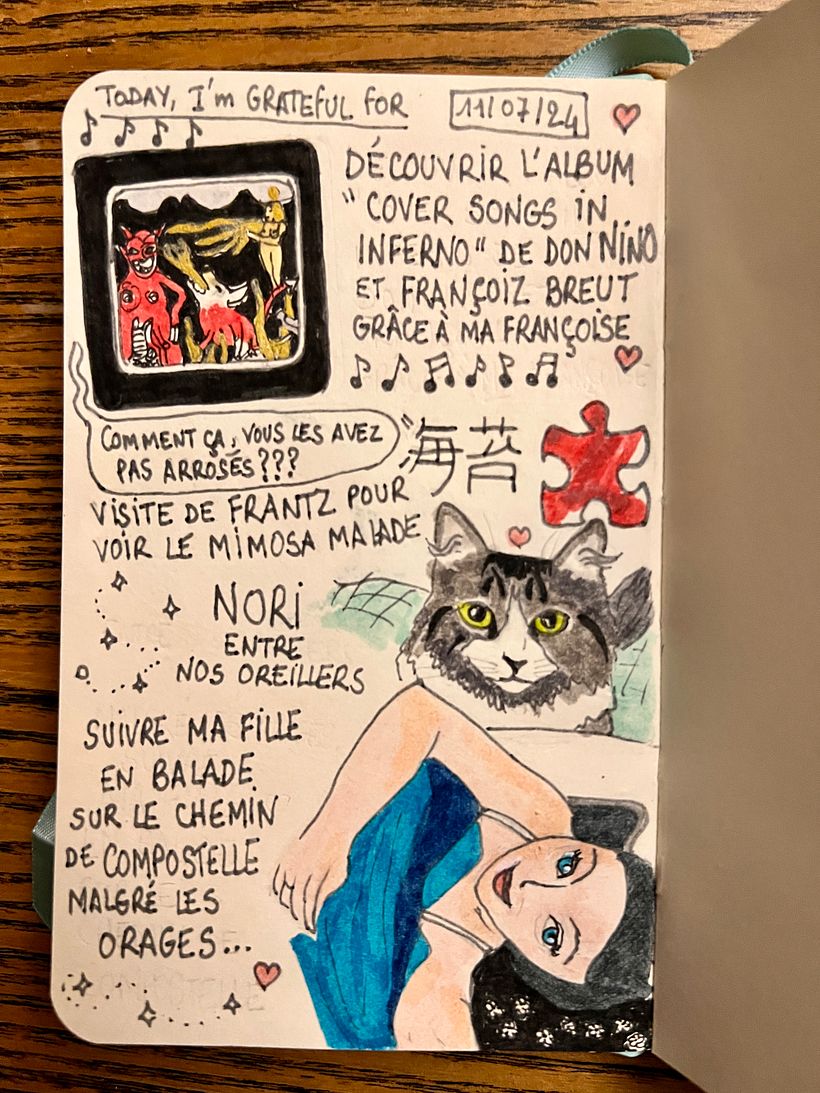 TODAY, I'm GRATEFUL FOR
11/07/24
DÉCOUVRIR L'ALBUM
"COVER SONGS IN
INFERNO" DE DON NINO
ET FRANÇOIZ BREUT
GRÂCE À MA FRANÇOISE
COMMENT ÇA, VOUS LES AVEZ
PAS ARROSÉS???
VISITE DE FRANTZ POUR
VOIR LE MIMOSA MALADE
海苔
NORI
ENTRE
NOS OREILLERS
SUIVRE MA FILLE
EN BALADE
SUR LE CHEMIN
DE COMPOSTELLE
MALGRÉ LES
ORAGES...